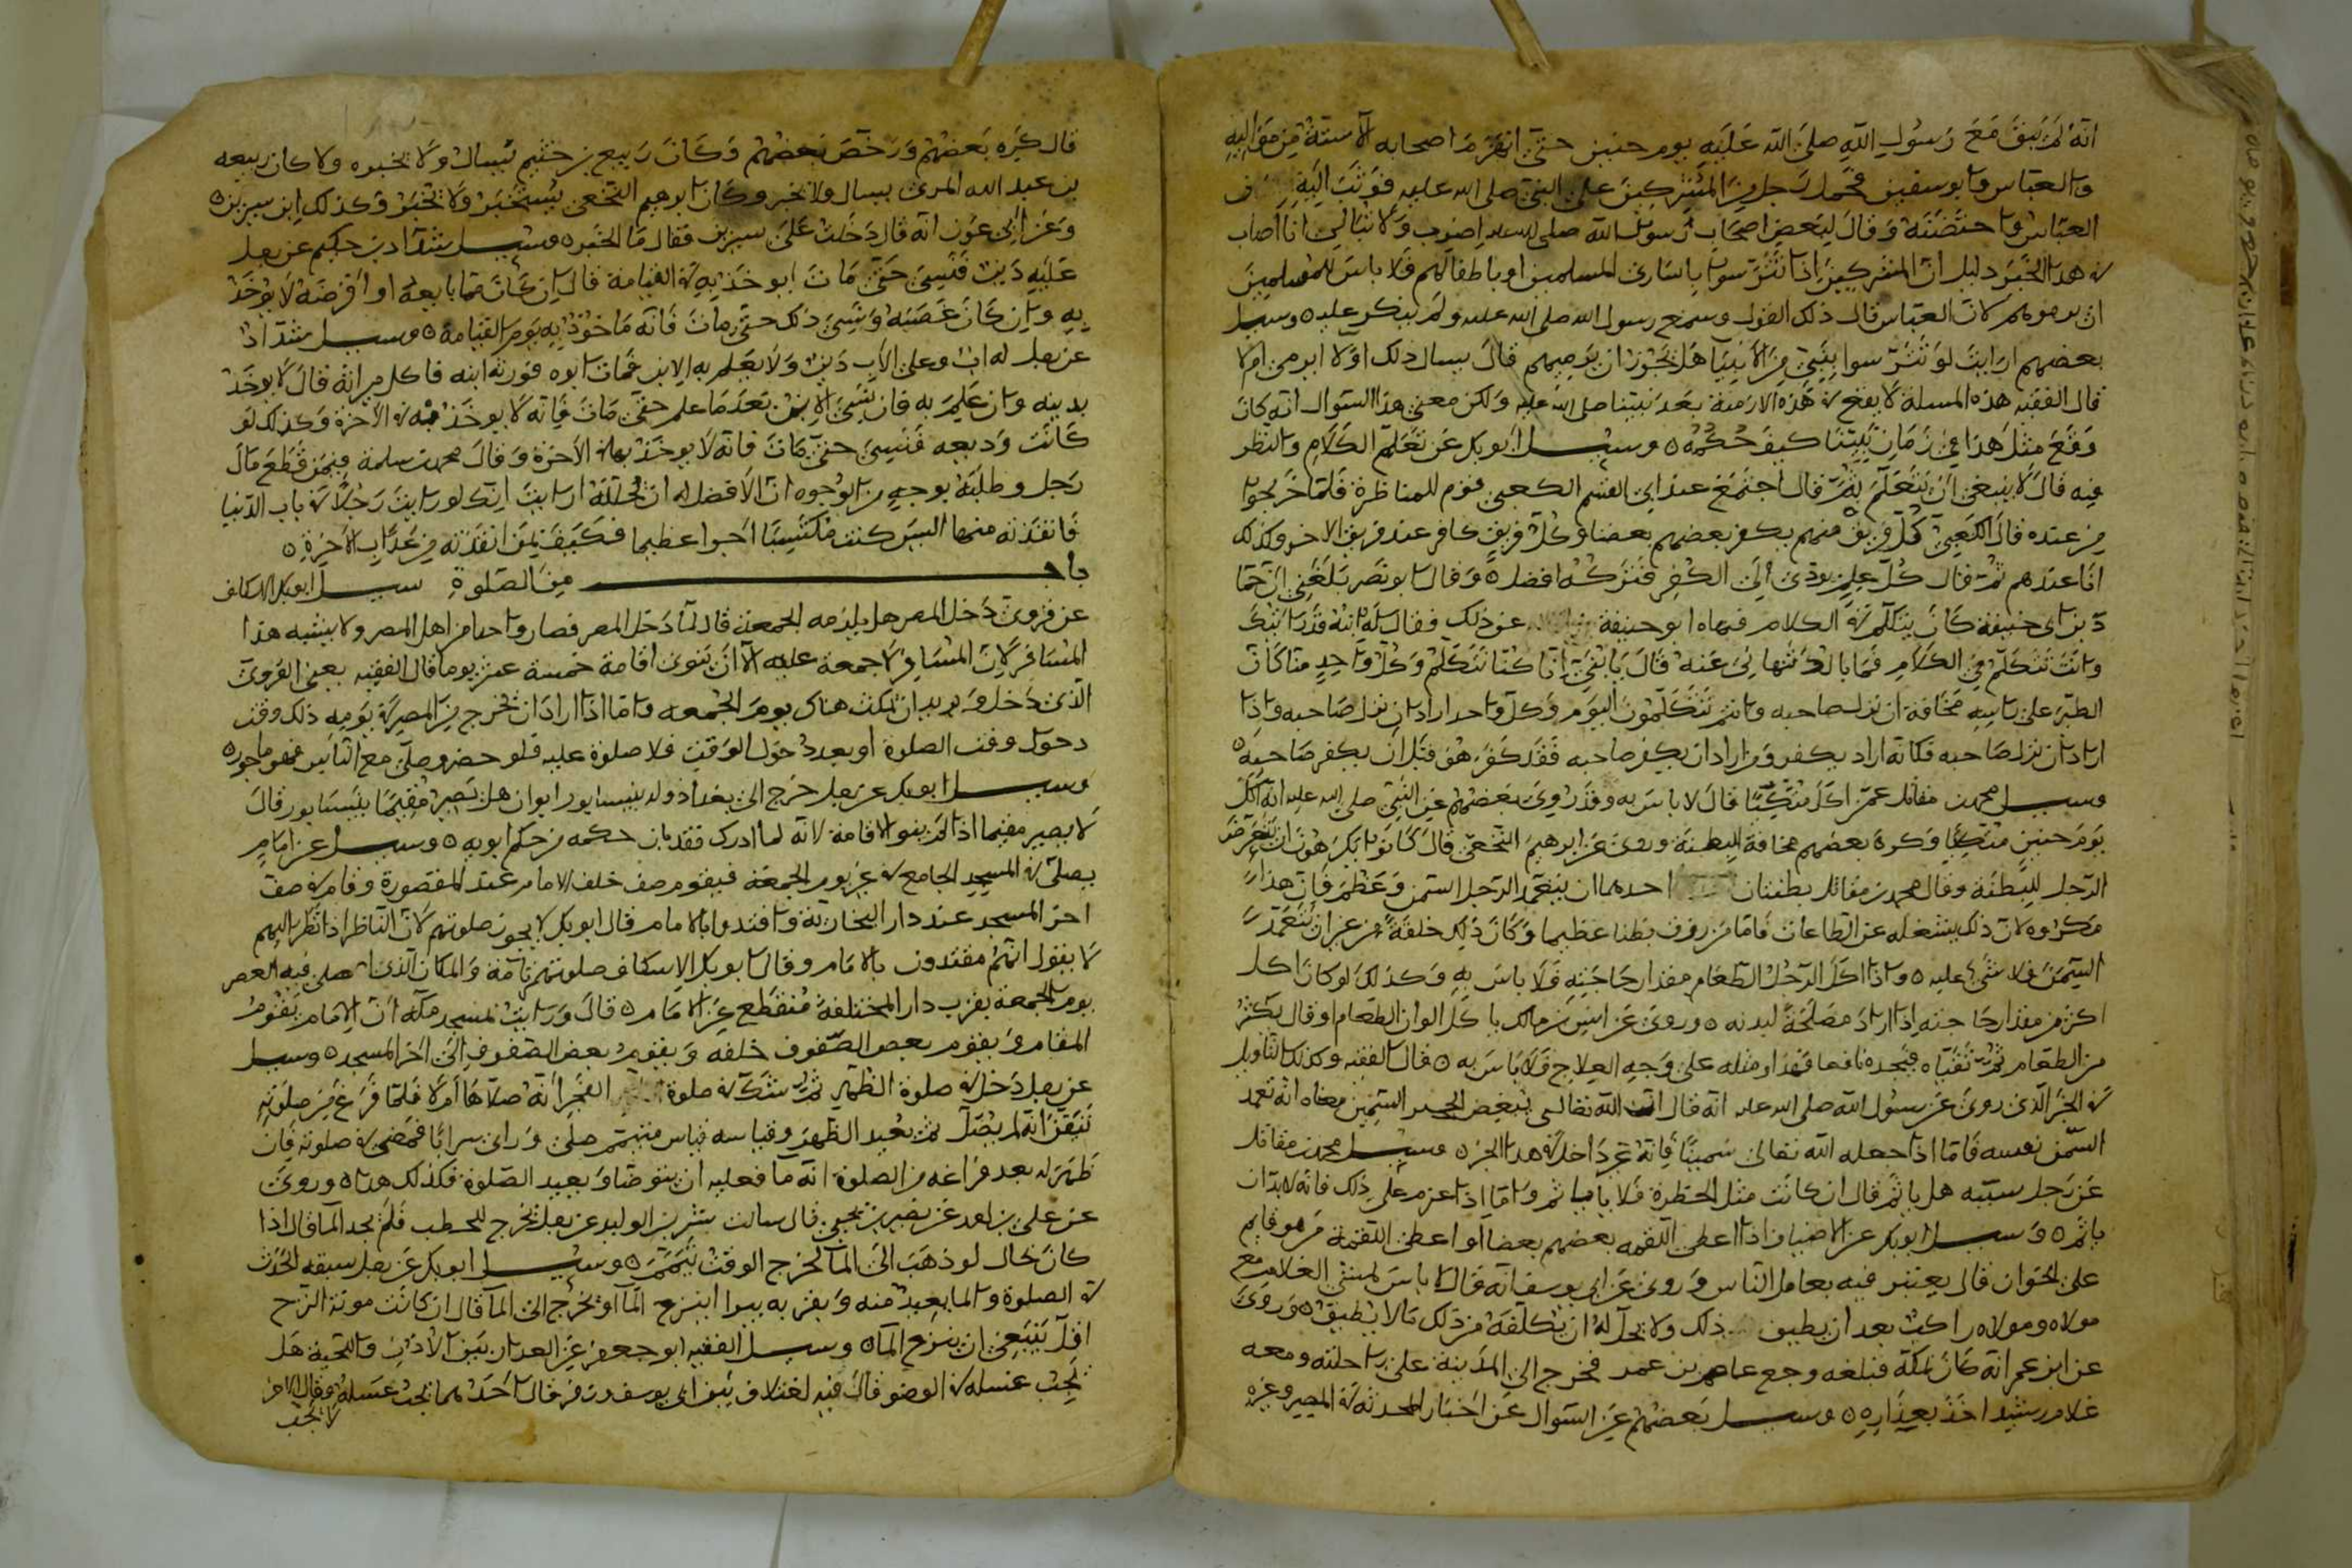 انه لم يبق مع رسول الله صلى الله عليه يوم حنين حتى انهزم اصحابه الا ستة من مواليه
والعباس وابو سفين فحمل رجل من المشركين على النبي صلى الله عليه فوثب اليه
العباس واحتضنه وقال لبعض اصحاب رسول الله صلى الله عليه اضرب ولا تبالي انا اصاب
في هذا الخبر دليل ان المشركين اذا تترسوا باسارى المسلمين او باطفالهم فلا باس للمسلمين
ان يرموهم لان العباس قال ذلك القول وسمع رسول الله صلى الله عليه ولم ينكر عليه ٥ وسيل
بعضهم ارايت لو تترسوا بنبي من الانبيا هل يجوز ان يرميهم قال يسال ذلك اولا ايرمى ام لا
قال الفقيه هذه المسلة لا يقع في هذه الازمنة بعد نبينا صلى الله عليه ولكن معنى هذا السوال انه كان
وقع مثل هذا في زمان نبينا كيف حكمه ٥ وسيل ابو بكر عن تعلم الكلام والنظر
فيه قال لا ينبغي ان يتعلم ثم قال اجتمع عند ابي القسم الكعبي قوم للمناظرة فلما خرجوا
من عنده قال الكعبي كل فريق منهم يكفر بعضهم بعضا وكل فريق كافر عند فريق الاخر وكذلك
انا عندهم ثم قال كل علم يودي الى الكفر فتركه افضل ٥ وقال ابو نصر بلغني ان حما
د بن ابي حنيفة كان يتكلم في الكلام فنهاه ابو حنيفة عن ذلك فقال له ابنه قد رايتك
وانت تتكلم في الكلام فما بالك تنهاني عنه قال يا بني انا كنا نتكلم وكل واحد منا كان
الطير على راسه مخافة ان يزل صاحبه وانتم تتكلمون اليوم وكل واحد اراد ان يزل صاحبه واذا
اراد ان يزل صاحبه فكانه اراد يكفر ومن اراد ان يكفر صاحبه فقد كفر هو قبل ان يكفر صاحبه ٥
وسيل محمد بن مقاتل عمن اكل متكئا قال لا باس به وقد روى بعضهم عن النبي صلى الله عليه انه اكل
يوم حنين متكيا وكره بعضهم مخافة البطنة وروى عن ابرهيم النخعي قال كانوا يكرهون ان يتعرض
الرجل للبطنة وقال محمد بن مقاتل بطنتان احدهما ان يتعمد الرجل السمن وعظم فان هذا
مكروه لان ذلك يشغله عن الطاعات فاما من رزق بطنا عظيما وكان ذلك خلقة من غير ان يتعمد
السمن فلا شي عليه ٥ واذا اكل الرجل الطعام مقدار حاجته فلا باس به وكذلك لو كان اكل
اكثر من مقدار حاجته اذا اراد مصلحة لبدنه ٥ وروى عن انس بن مالك ياكل الوان الطعام او قال يكثر
من الطعام ثم تقياه فيجده نافعا فهذا ومثله على وجه العلاج فلا باس به ٥ قال الفقيه وكذلك التاويل
في الخبر الذي روى عن رسول الله صلى الله عليه انه قال ان الله تعالى يبغض الحبر السمين معناه انه تعمد
السمن نفسه فاما اذا جعله الله تعالى سمينا فانه غير داخل في هذا الخبر ٥ وسيل محمد بن مقاتل
عن رجل سيبه هل ياثم قال ان كانت مثل الخطرة فلا ياثم واما اذا عزم على ذلك فانه لا بد ان
ياثم ٥ وسيل ابو بكر عن الاضياف اذا اعطى اللقمه بعضهم بعضا او اعطى اللقمة من هو قايم
على الخوان قال يعتبر فيه تعامل الناس وروى عن ابي يوسف انه قال لا باس لمشي الغلام مع
مولاه ومولاه راكب بعد ان يطيق ذلك ولا يحل له ان يكلفه من ذلك ما لا يطيق ٥ وروى
عن ابن عمر انه كان بمكة فبلغه وجع عاصم بن عمر فخرج الى المدينة على راحلته ومعه
غلام رشيد اخذ بعذاره ٥ وسيل بعضهم عن السوال عن اخبار المحدثه في المصر وغيره
قال كره بعضهم ورخص بعضهم وكان ربيع بن خثيم يسال ولا يخبروه ولا كان ربيعه
بن عبد الله المرى يسال ولا يخبر وكان ابرهيم النخعي يستخبر ولا يخبر وكذلك ابن سيرين ٥
وعن ابن عون انه قال دخلت على سيرين فقال ما الخبر ٥ وسيل شداد بن حكيم عن رجل
عليه دين فنسي حتى مات ايوخذ به في القيامة قال ان كان مما بايعه او اقرضه لا يوخذ
به وان كان غصبه ونسي ذلك حتى مات فانه ماخوذ به يوم القيامة ٥ وسيل شداد
عن رجل له ابن وعلى الاب دين ولا يعلم به الابن فمات ابوه فورثه ابنه فاكل ميراثه قال لا يوخذ
بدينه وان علم به فان نسي الابن بعد ما علم حتى مات فانه لا يوخذ به في الاخرة وكذلك لو
كانت وديعه فنسي حتى مات فانه لا يوخذ بها في الاخرة وقال محمد بن سلمة فيمن قطع مال
رجل وطلبه بوجه من الوجوه ان الافضل له ان يحلله ارايت انك لو رايت رجلا في باب الدنيا
فانقذته منها اليس كنت مكتسبا اجرا عظيما فكيف بمن انقذته من عذاب الاخرة ٥
باب من الصلوة سيل ابو بكر الاسكاف
عن قروى دخل المصر هل يلزمه الجمعة قال لما دخل المصر فصار واحدا من اهل المصر ولا يشبه هذا
المسافر لان المسافر لا جمعة عليه الا ان ينوى اقامة خمسة عشر يوما قال الفقيه يعني القروى
الذي دخل وهو يريد ان يمكث هناك يوم الجمعه واما اذا اراد ان يخرج من المصر في يومه ذلك وقت
دخول وقت الصلوة او بعد دخول الوقت فلا صلوة عليه فلو حضر وصلى مع الناس فهو ماجور ٥
وسيل ابو بكر عن رجل خرج الى بغداذ وله بنيسابور ابوان هل يصير مقيما بنيسابور قال
لا يصير مقيما اذا لم ينو الاقامة لانه لما ادرك فقد بان حكمه من حكم ابويه ٥ وسيل عن امام
يصلي في المسجد الجامع في غير يوم الجمعة فيقوم صف خلف الامام عند المقصورة وقام في صف
اخر المسجد عند دار البخارية واقتدوا بالامام قال ابو بكر لا يجوز صلوتهم لان الناظر اذا نظر اليهم
لا يقول انهم مقتدون بالامام وقال ابو بكر الاسكاف صلوتهم تامة والمكان الذي صلى فيه العصر
يوم الجمعة بقرب دار المختلفة منقطع عن الامام ٥ قال ورايت بمسجد مكة ان الامام يقوم
المقام ويقوم بعض الصفوف خلفه ويقوم بعض الصفوف الى اخر المسجد ٥ وسيل
عن رجل دخل في صلوة الظهر ثم شك في صلوة الفجر انه صلاها ام لا فلما فرغ من صلوته
تيقن انه لم يصل ثم يعيد الظهر وقياسه قياس متيمم صلى وراى سرابا فمضى في صلوته فان
ظهر له بعد فراغه من الصلوة انه ما فعليه ان يتوضا ويعيد الصلوة فكذلك هذا ٥ وروى
عن علي بن احمد عن نصير بن يحيى قال سالت بشر بن الوليد عن رجل يخرج للحطب فلم يجد الما قال اذا
كان بحال لو ذهب الى الما لخرج الوقت يتيمم ٥ وسيل ابو بكر عن رجل سبقه الحدث
في الصلوة والما بعيد منه وبقربه بيرا اينزع الما او يخرج الى الما قال ان كانت مونة النزح
اقل ينبغي ان ينزح الما ٥ وسيل الفقيه ابو جعفر عن العذار بين الاذن واللحية هل
يجب غسله في الوضو قال فيه اختلاف بين ابي يوسف وزفر قال احدهما يجب غسله وقال الاخر
لا يجب